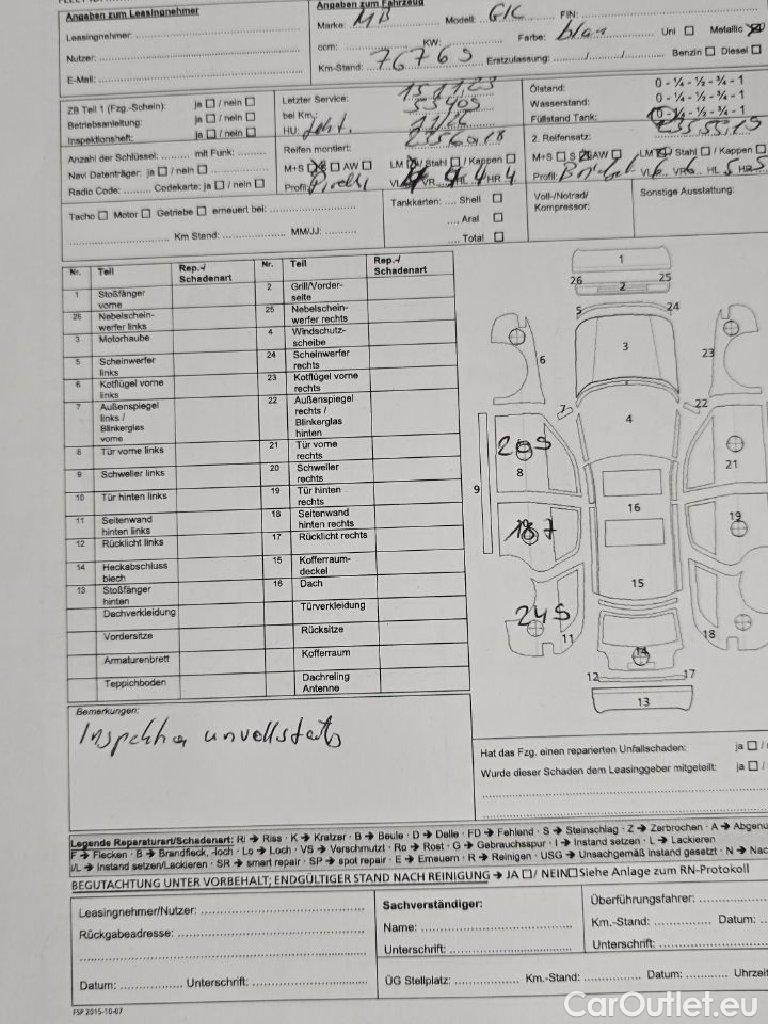 Angaben zum Leasingnehmer
Leasingnehmer:
Nutzer:
E-Mail:
Angaben zum Fahrzeug
Marke: MB Modell: GLC FIN:
ccm: KW: Farbe: blau Uni Metallic
Km-Stand: 76769 Erstzulassung: / / Benzin Diesel
ZB Teil 1 (Fzg.-Schein): ja / nein
Betriebsanleitung: ja / nein
Inspektionsheft: ja / nein
Anzahl der Schlüssel: mit Funk:
Navi Datenträger: ja / nein
Radio Code: Codekarte: ja / nein
Letzter Service:
bei Km.:
HU:
Reifen montiert:
M+S S AW LM / Stahl / Kappen
Profil: Pirelli VL VR HL 4 HR 4
Ölstand: 0 - ¼ - ½ - ¾ - 1
Wasserstand: 0 - ¼ - ½ - ¾ - 1
Füllstand Tank: 0 - ¼ - ½ - ¾ - 1
2. Reifensatz:
M+S S AW LM / Stahl / Kappen
Profil: VL VR 6 HL 5 HR 5
Tacho Motor Getriebe erneuert bei:
Km Stand: MM/JJ:
Tankkarten: Shell
Aral
Total
Voll-/Notrad/
Kompressor:
Sonstige Ausstattung:
Nr. Teil Rep.-/ Schadenart Nr. Teil Rep.-/ Schadenart
1 Stoßfänger vorne 2 Grill/Vorderseite
26 Nebelscheinwerfer links 25 Nebelscheinwerfer rechts
3 Motorhaube 4 Windschutzscheibe
5 Scheinwerfer links 24 Scheinwerfer rechts
6 Kotflügel vorne links 23 Kotflügel vorne rechts
7 Außenspiegel links / Blinkerglas vorne 22 Außenspiegel rechts / Blinkerglas hinten
8 Tür vorne links 21 Tür vorne rechts
9 Schweller links 20 Schweller rechts
10 Tür hinten links 19 Tür hinten rechts
11 Seitenwand hinten links 18 Seitenwand hinten rechts
12 Rücklicht links 17 Rücklicht rechts
14 Heckabschluss blech 15 Kofferraumdeckel
13 Stoßfänger hinten 16 Dach
Dachverkleidung Türverkleidung
Vordersitze Rücksitze
Armaturenbrett Kofferraum
Teppichboden Dachreling Antenne
1
26 2 25
5 24
6 3 23
7 22
4
209
8 21
9
16
187 19
15
245
11 18
14
12 17
13
Bemerkungen:
Inspektion
Hat das Fzg. einen reparierten Unfallschaden: ja
Wurde dieser Schaden dem Leasinggeber mitgeteilt: ja
Legende Reparaturart/Schadenart: Ri → Riss · K → Kratzer · B → Beule · D → Delle · FD → Fehlend · S → Steinschlag · Z → Zerbrochen · A →
F → Flecken · B → Brandfleck, -loch · Lo → Loch · VS → Verschmutzt · Ro → Rost · G → Gebrauchsspur · I → Instand setzen · L → Lackieren
I/L → Instand setzen/Lackieren · SR → smart repair · SP → spot repair · E → Erneuern · R → Reinigen · USG → Unsachgemäß instand gesetzt · N →
BEGUTACHTUNG UNTER VORBEHALT; ENDGÜLTIGER STAND NACH REINIGUNG → JA / NEIN Siehe Anlage zum RN-Protokoll
Leasingnehmer/Nutzer:
Rückgabeadresse:
Datum: Unterschrift:
Sachverständiger:
Name:
Unterschrift:
Überführungsfahrer:
Km.-Stand: Datum:
Unterschrift:
ÜG Stellplatz: Km.-Stand: Datum: Uhrzeit
FSP 2015-10-07
CarOutlet.eu